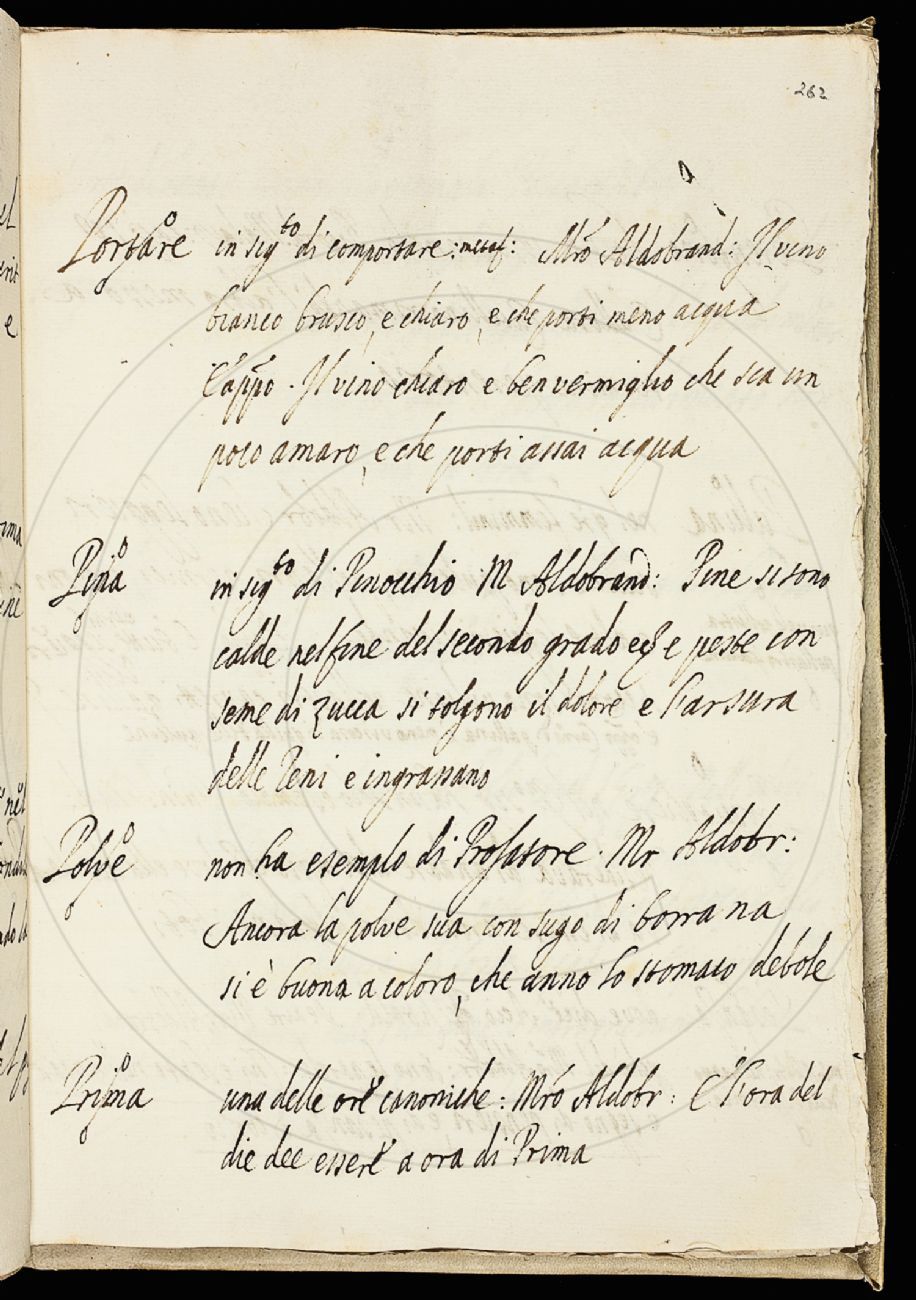 262
Portare in sig.to di comportare: metaf: Mro Aldobrand: Il vino
bianco brusco, e chiaro, e che porti meno acqua
E appo. Il vino chiaro e ben vermiglio che sia un
poco amaro, e che porti assai acqua
Pina in sig.to di Pinocchio M Aldobrand: Pine si sono
calde nel fine del secondo grado ec e peste con
seme di zucca si tolgono il dolore e l'arsura
delle Reni e ingrassano
Polve non ha esemplo di Prosatore. Mr Aldobr:
Ancora la polve sua con sugo di borrana
si è buona a coloro, che anno lo stomaco debole
Prima una delle ore canoniche: Mro Aldobr: E l'ora del
die dee essere a ora di Prima